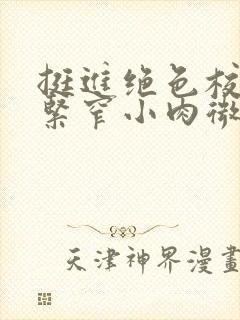 挺進绝色校
緊窄小肉微
天津神界漫畫